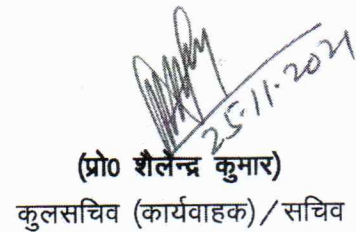 25.11.2021
(प्रो0 शैलेन्द्र कुमार)
कुलसचिव (कार्यवाहक) / सचिव